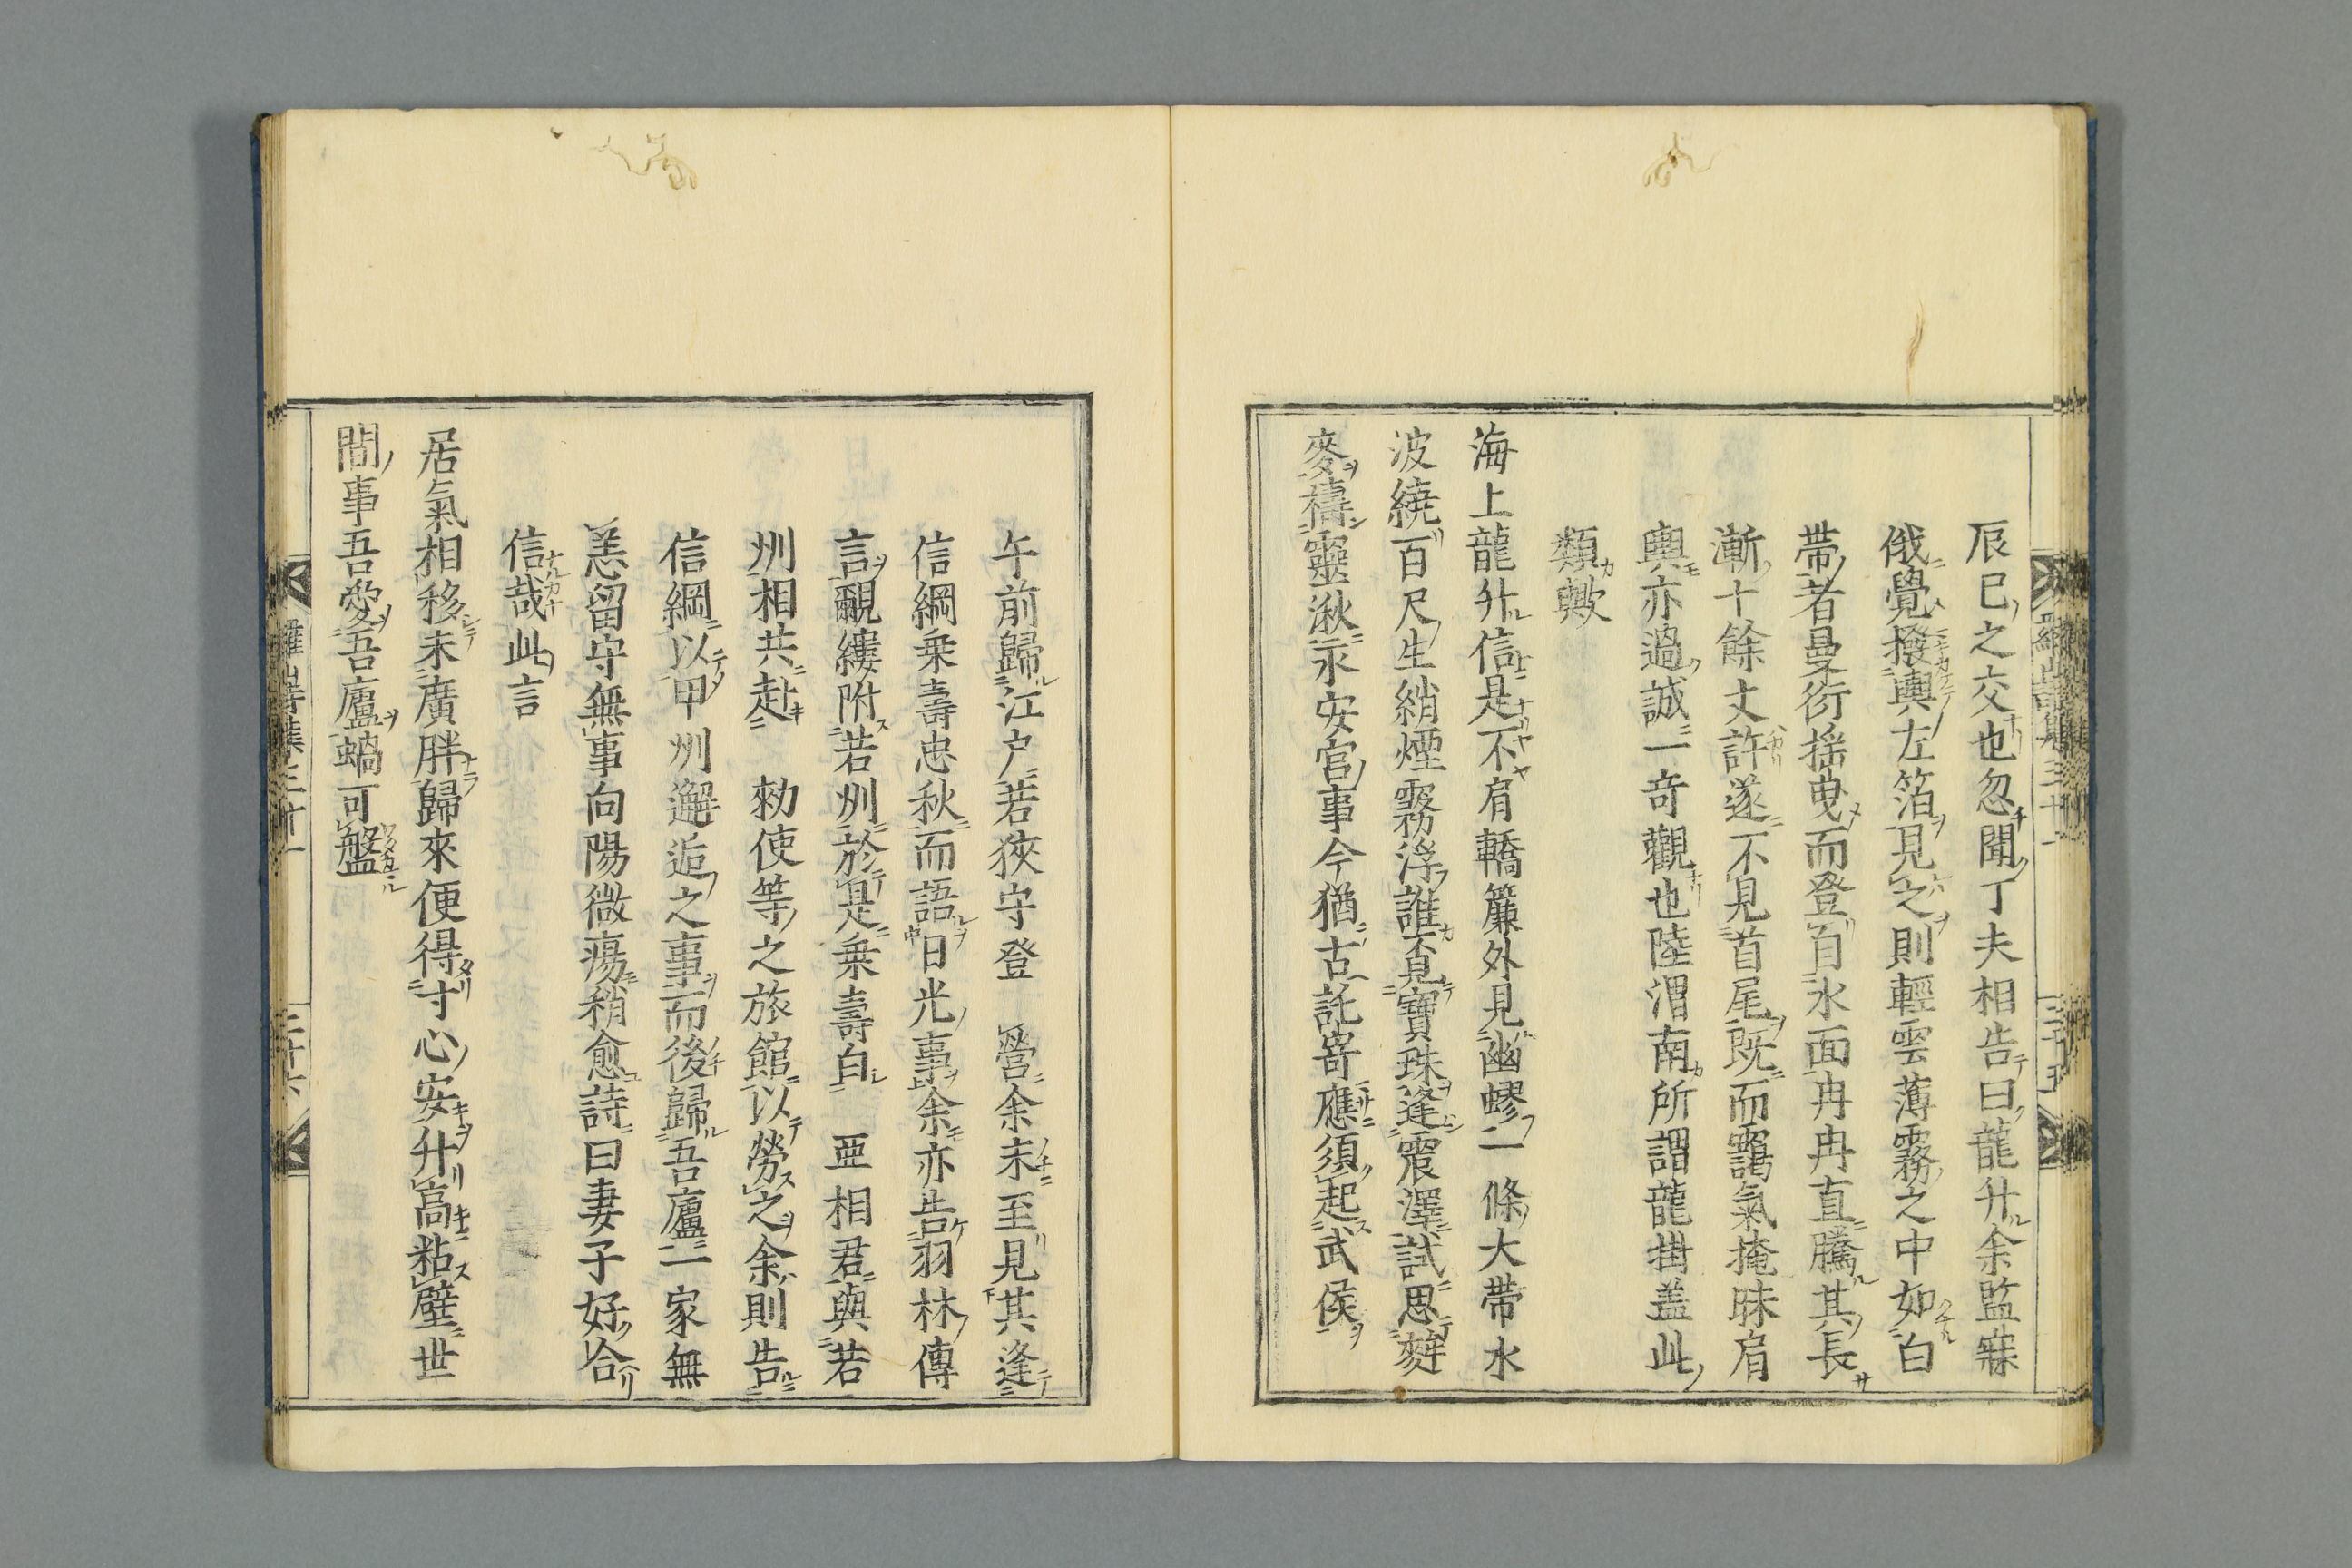 辰巳之交也忽聞丁夫相告曰龍升余監寐
俄覺撥輿左箔見之則輕雲薄霧之中如白
帶者曼衍搖曳而登自水面冉冉直騰其長
漸十餘丈許遂不見首尾既而靄氣掩昧肩
輿亦過誠一奇觀也陸渭南所謂龍掛盖此
類歟
海上龍升信是不肩轎簾外見幽蟉一條大帶水
波繞百尺生綃煙霧浮誰覓寶珠逢震澤試思麰
麥禱靈湫永安宮事今猶古託寄應須起武侯
午前歸江户若狹守登 營余未至見其逢
信綱乗壽忠秋而語日光事余亦告羽林傳
言覼縷附若州於是乗壽白 亜相君與若
州相共赴 勑使等之旅館以勞之余則告
信綱以甲州邂逅之事而後歸吾廬一家無
恙留守無事向陽微瘍稍愈詩曰妻子好合
信哉此言
居氣相移未廣胖歸來便得寸心安升高粘壁世
間事吾愛吾廬蝸可盤